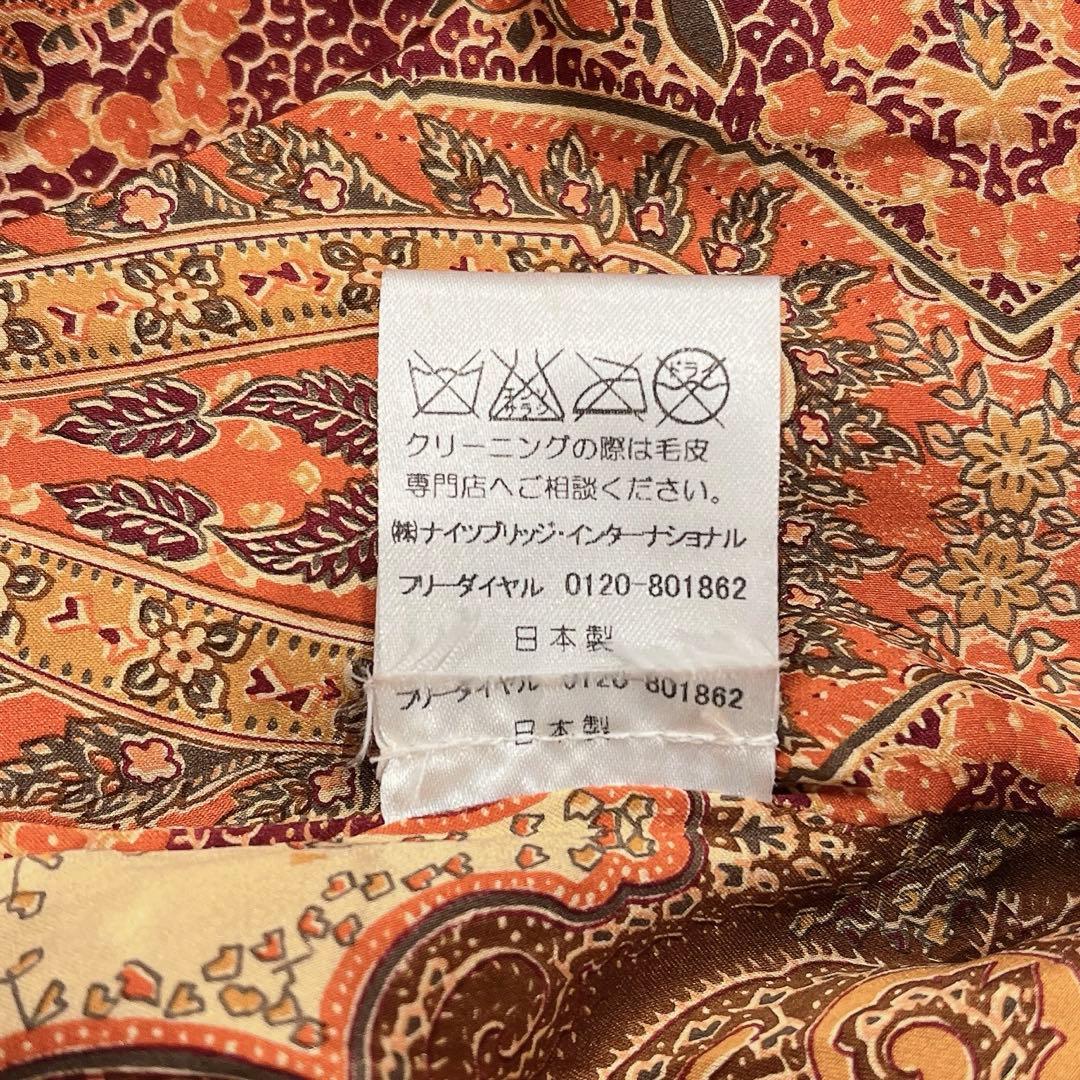 エンソ
サラシ
ドライ
クリーニングの際は毛皮
専門店へご相談ください。
㈱ナイツブリッジ・インターナショナル
フリーダイヤル 0120-801862
日本製
フリーダイヤル 0120-801862
日本製